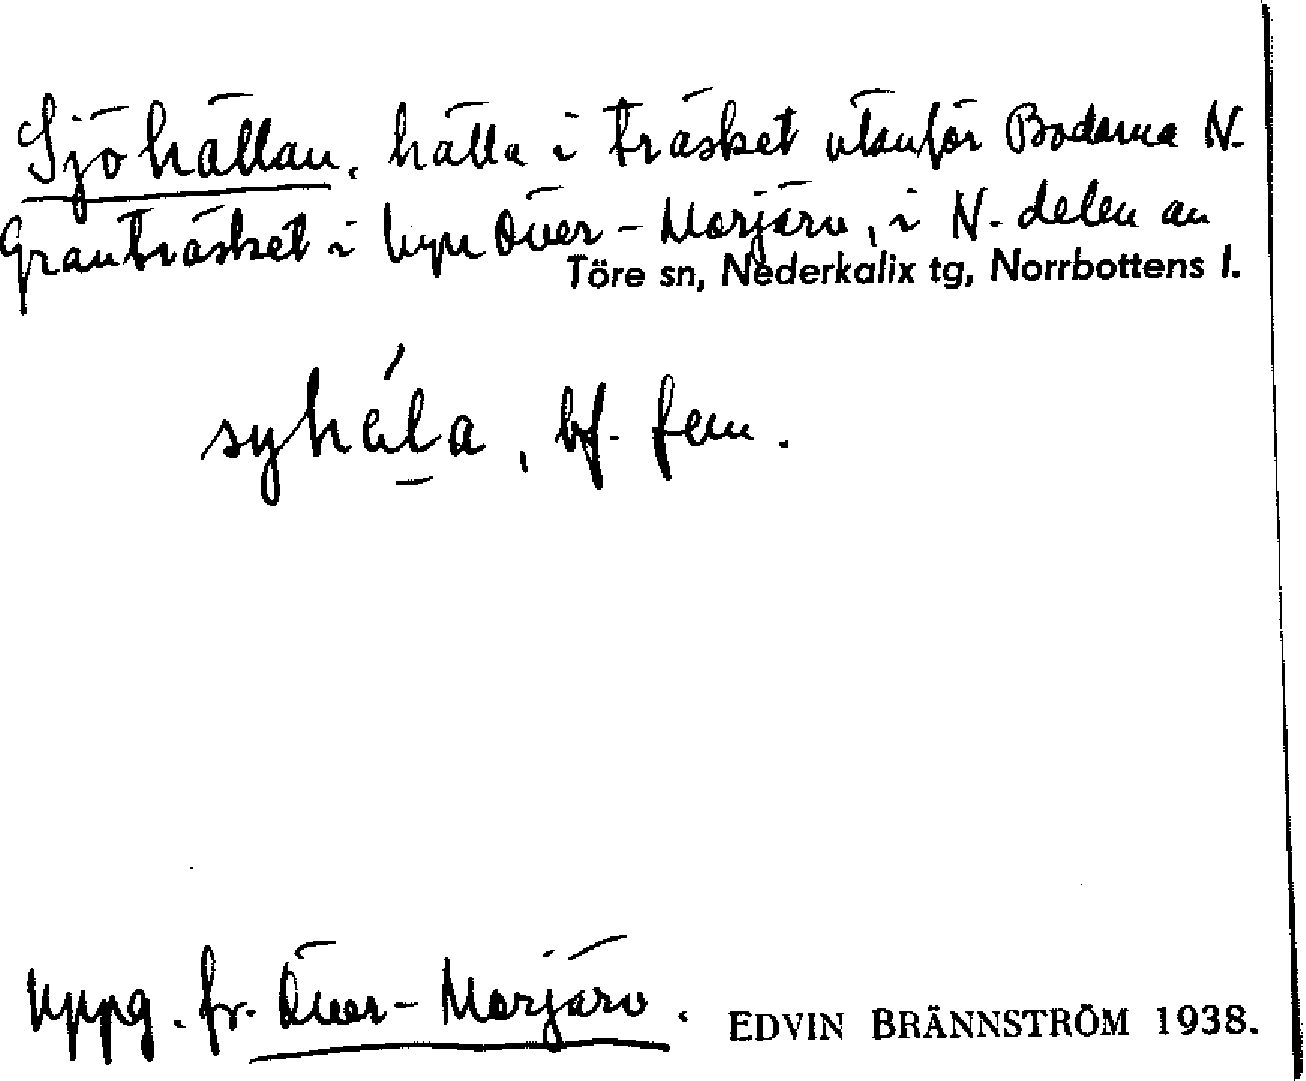 Sjöhällan. hälla i träsket utanför Bodarna N.
Granträsket i byn Över-Morjärv, i N. delen av
Töre sn, Nederkalix tg, Norrbottens l.
syhéla, bf. fem.
Uppg. fr. Över-Morjärv. EDVIN BRÄNNSTRÖM 1938.